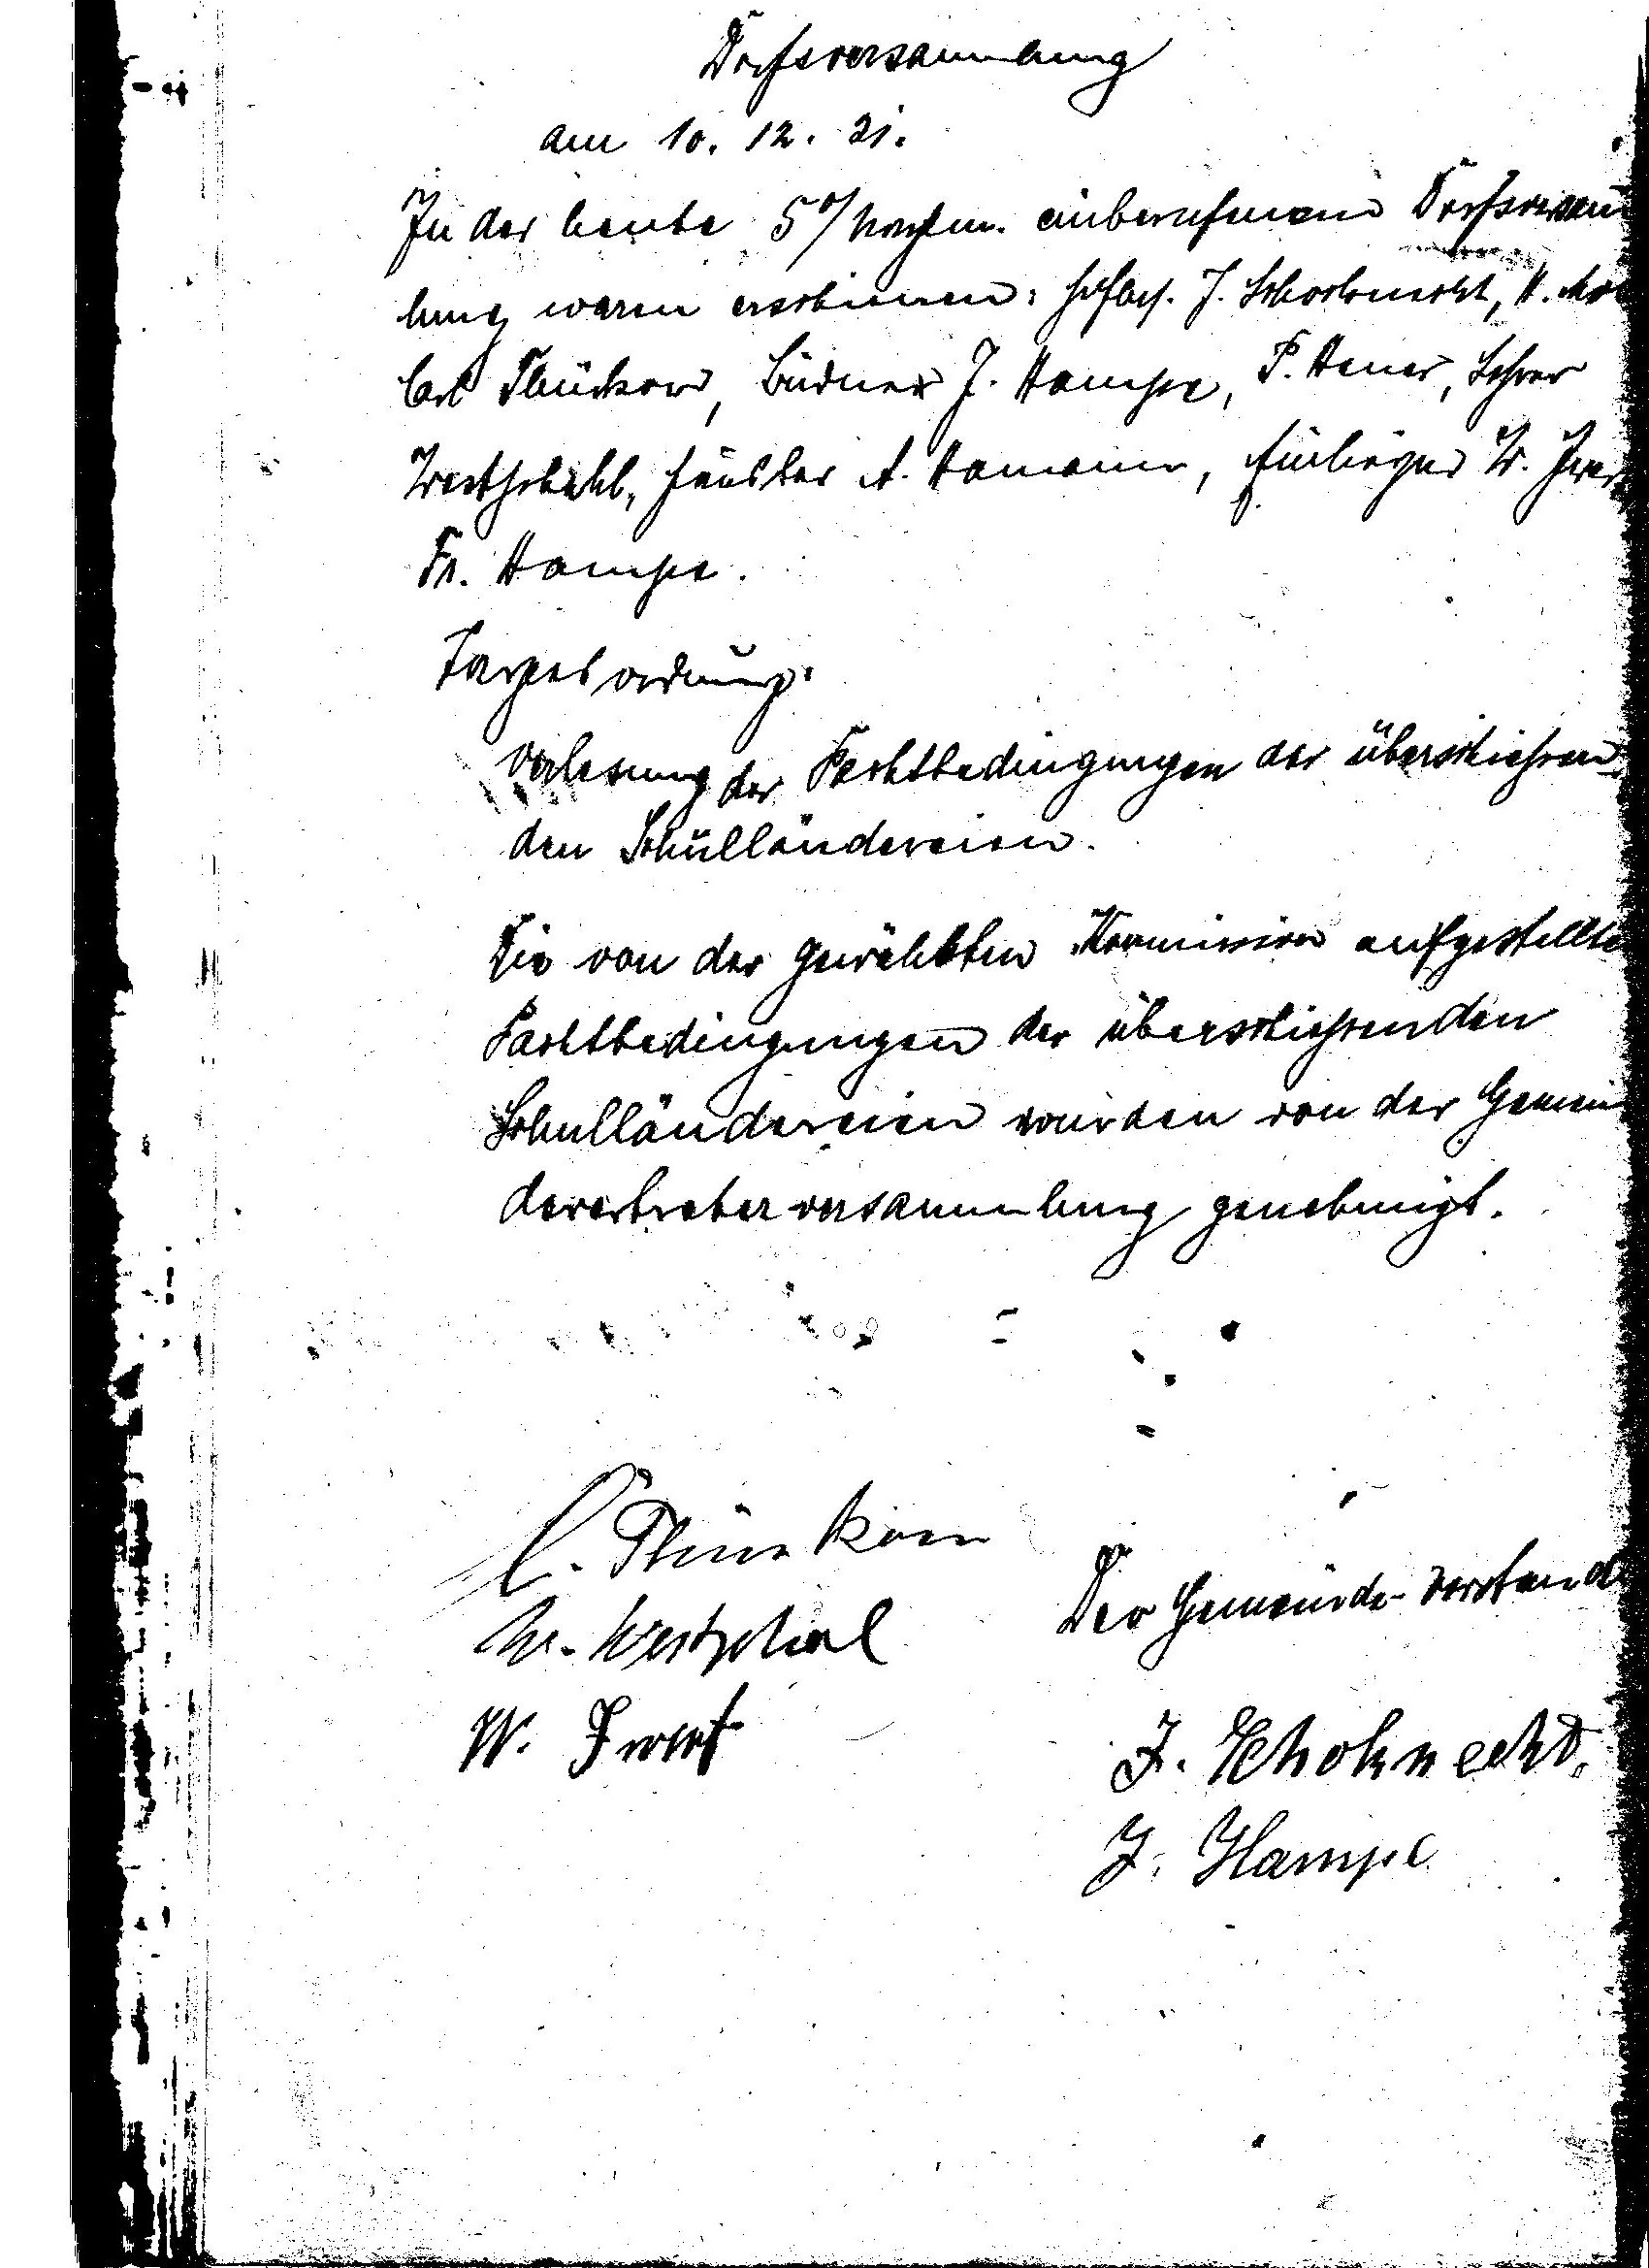 Dorfsversammlung
am 10. 12. 21.
In der heute 5°/ Nachm. einberufenen Dorfsversamm
lung waren erschienen: Hofbes. J. Schoknecht, H.
Carl Thürkow, Büdner J. Hampe, P. Hener, Lehrer
Westphahl, Häusler A. Hamann, Einlieger W. Iwer
Fr. Hampe.
Tagesordnung:
Verlesung der Pachtbedingungen der überschiessen
den Schulländereien.
Die von der gewählten Kommission aufgestellte
Pachtbedingungen der überschiessenden
Schulländereien wurden von der Gemein
devertreterversammlung genehmigt.
C. Thürkow
W. Westphal
W. Iwert
Der Gemeinde-Vorstand
J. Schoknecht.
J. Hampe